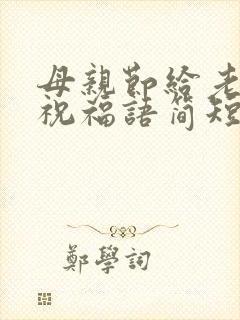 母親節給老
祝福語简短
鄭學詞